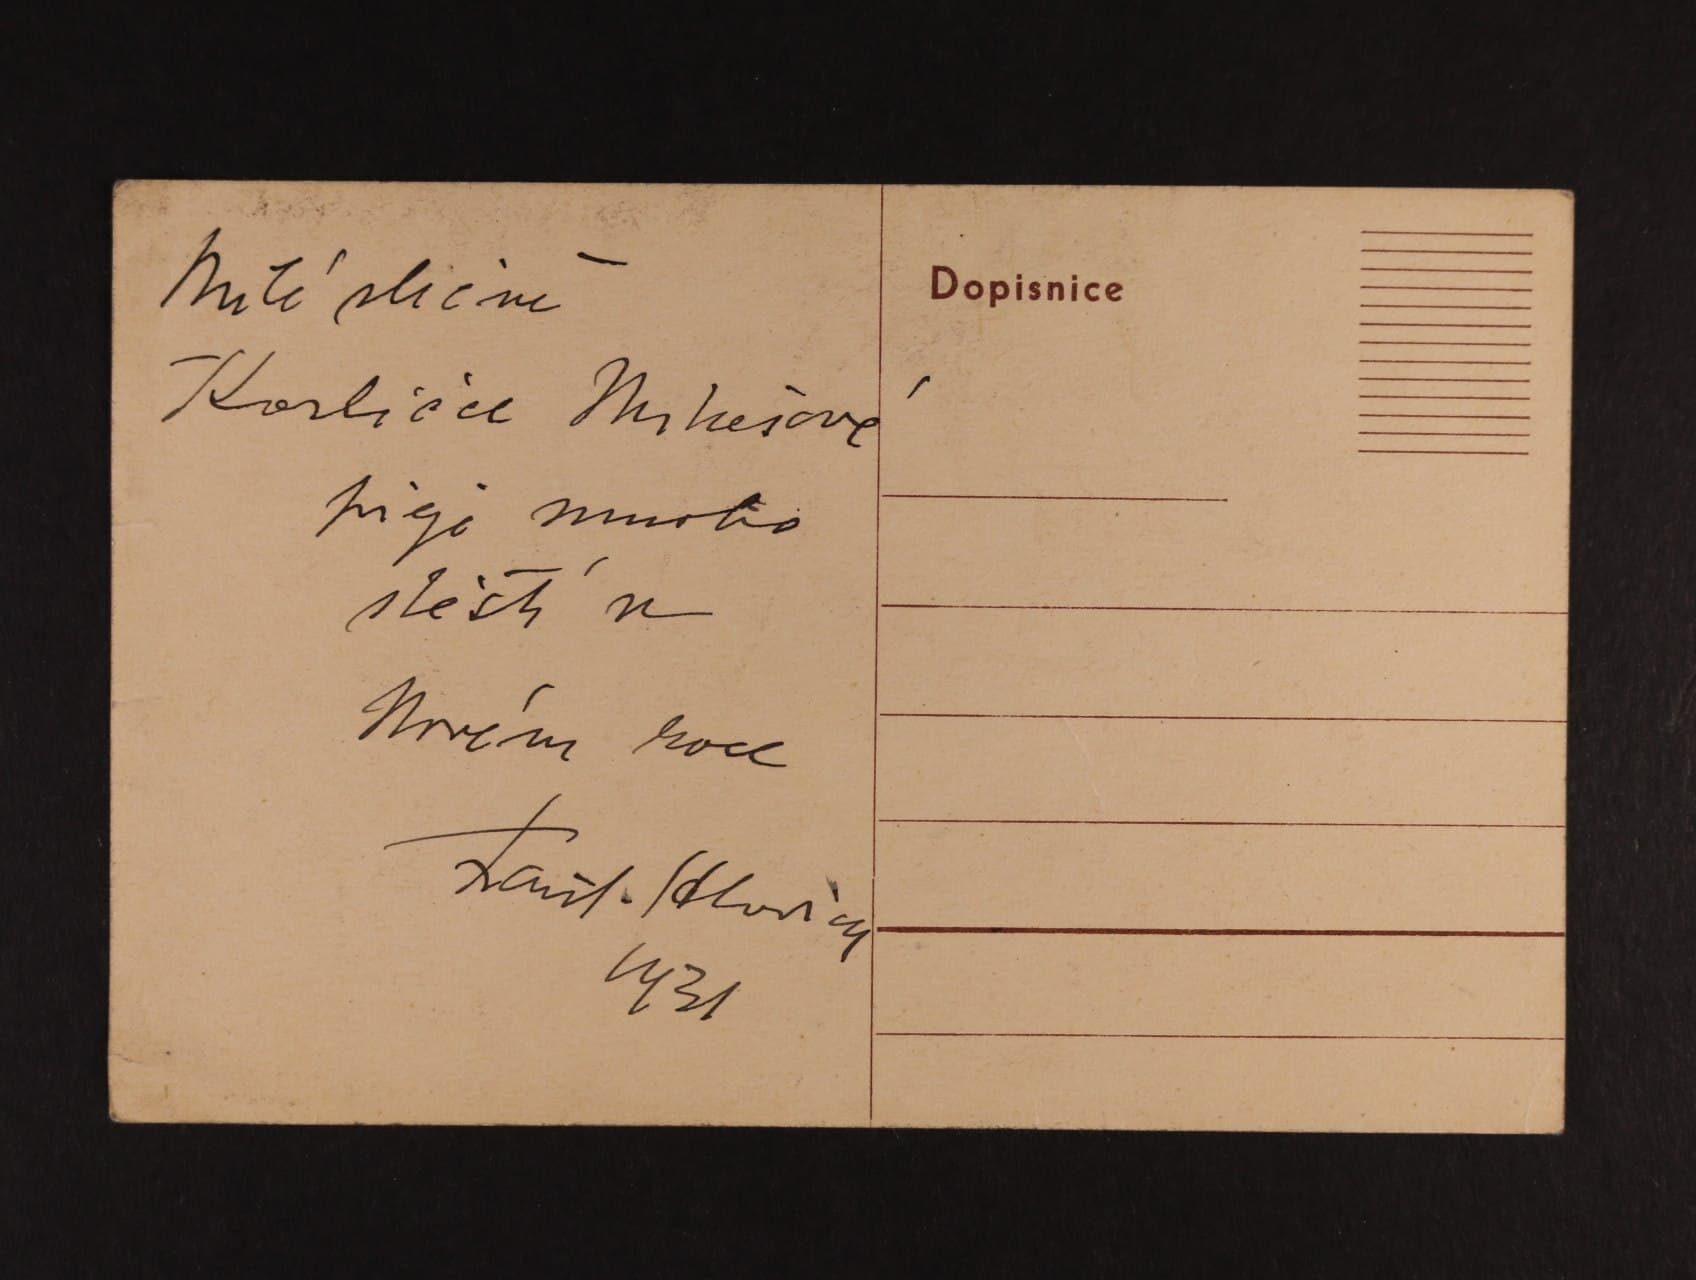 Milé slečně
Karličce Mikešové
přeji mnoho
štěstí v
Novém roce
1931
Dopisnice